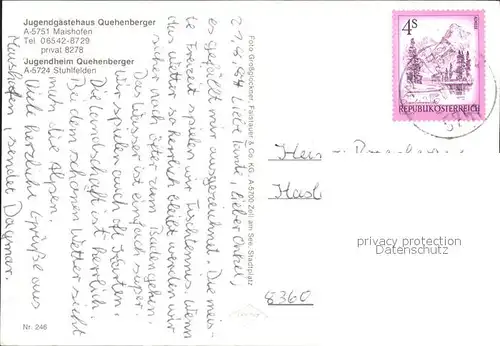 Jugendgästehaus Quehenberger
A-5751 Maishofen
Tel 06542-8729
privat 8278
Jugendheim Quehenberger
A-5724 Stuhlfelden
29.8.84 Liebe Tante, lieber Onkel,
es gefällt mir ausgezeichnet. Die meis-
te Freizeit spielen wir Tischtennis. Wenn
das Wetter so herrlich bleibt werden wir
sicher noch öfter zum Baden gehen.
Das Wasser ist einfach super.
Wir spielen auch oft Karten.
Die Landschaft ist herrlich.
Bei dem schönen Wetter sieht
man die Alpen.
Viele herzliche Grüße aus
Maishofen, sendet Dagmar.
Foto Großglockner, Faistauer & Co. KG, A-5700 Zell am See, Stadtplatz
4S
REPUBLIK ÖSTERREICH
8360
privacy protection
Datenschutz
Nr. 246